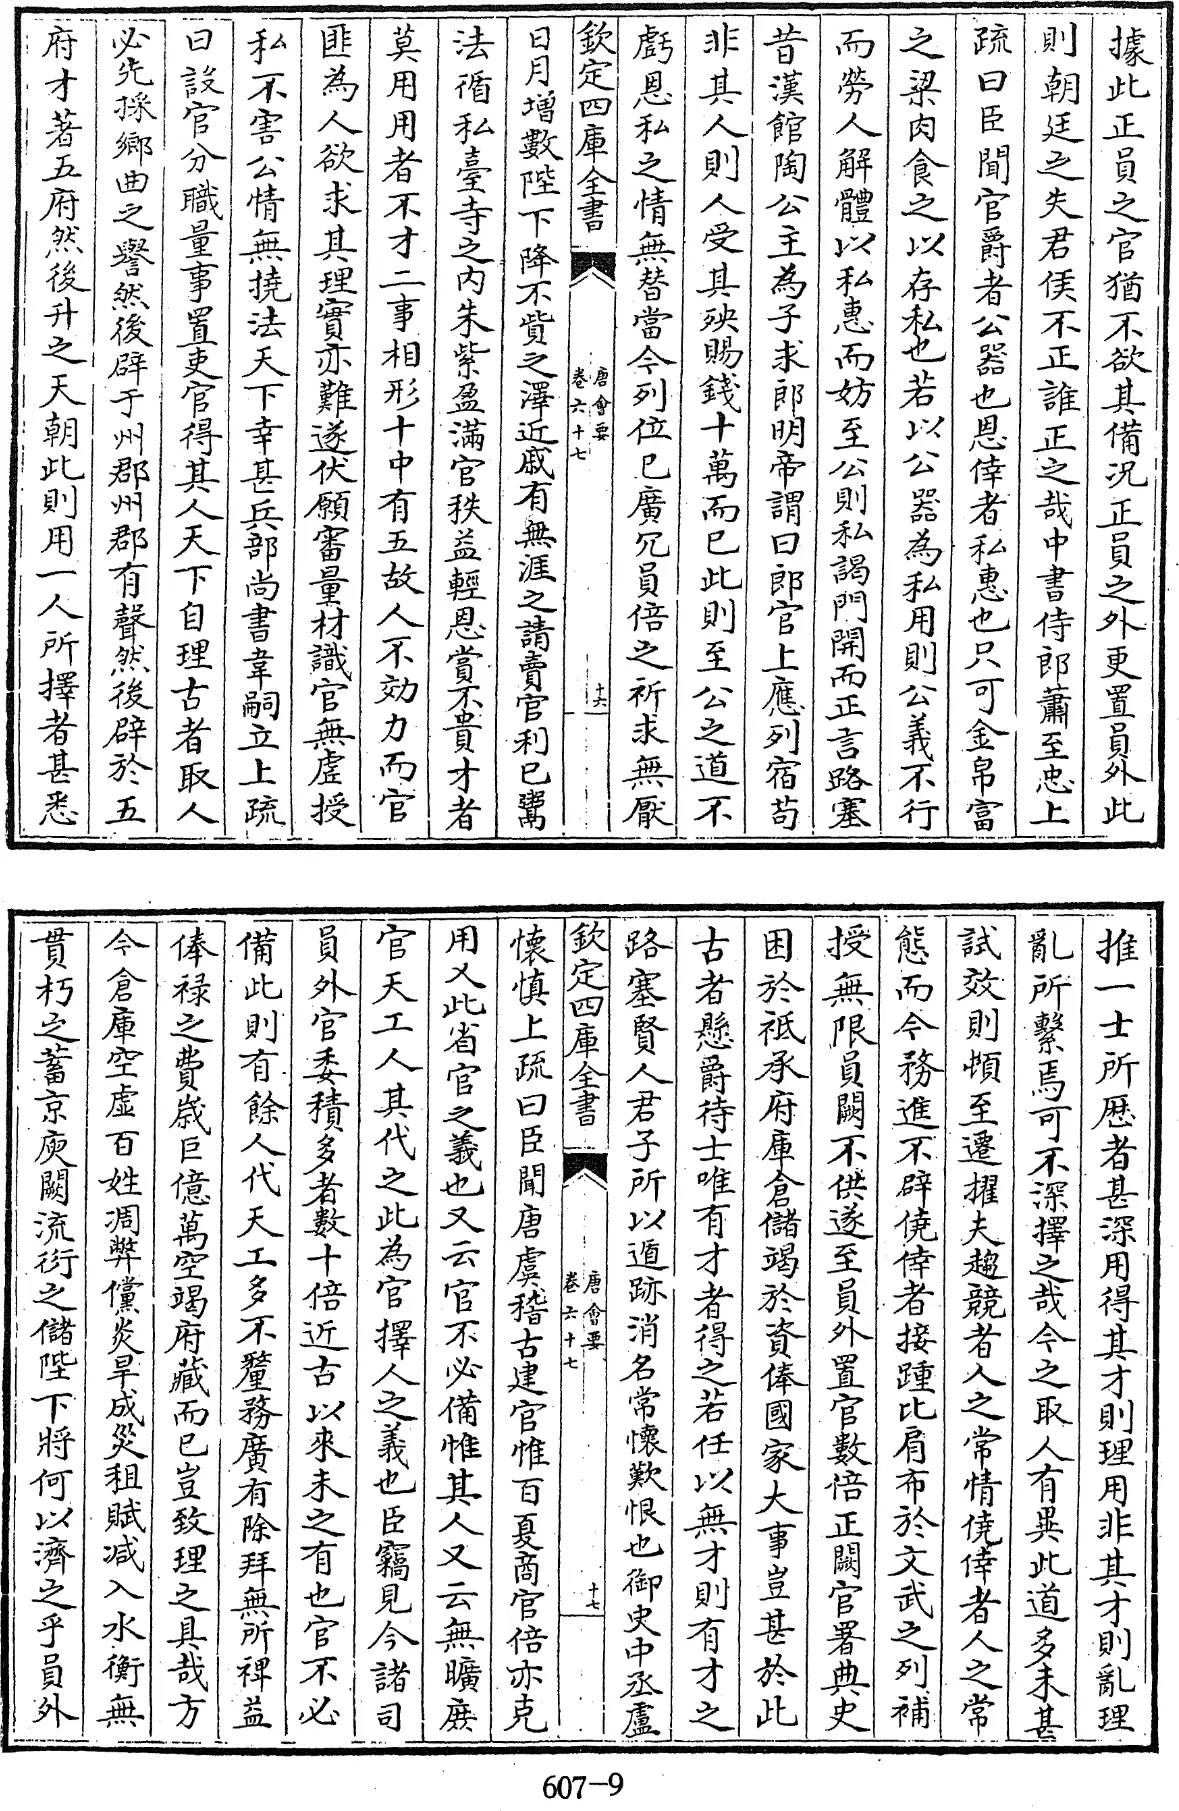 據此正員之官猶不欲其備况正員之外更置員外此
則朝廷之失君侯不正誰正之哉中書侍郎蕭至忠上
疏曰臣聞官爵者公器也恩倖者私惠也只可金帛富
之粱肉食之以存私也若以公器為私用則公義不行
而勞人解體以私惠而妨至公則私謁門開而正言路塞
昔漢館陶公主為子求郎明帝謂曰郎官上應列宿苟
非其人則人受其殃賜錢十萬而已此則至公之道不
虧恩私之情無替當今列位已廣冗員倍之祈求無厭
欽定四庫全書
唐會要
卷六十七
十六
日月增數陛下降不貲之澤近戚有無涯之請賣官利已鬻
法循私臺寺之内朱紫盈滿官秩益輕恩賞不貴才者
莫用用者不才二事相形十中有五故人不効力而官
匪為人欲求其理實亦難遂伏願審量材識官無虚授
私不害公情無撓法天下幸甚兵部尚書韋嗣立上疏
曰設官分職量事置吏官得其人天下自理古者取人
必先採鄉曲之譽然後辟于州郡州郡有聲然後辟於五
府才著五府然後升之天朝此則用一人所擇者甚悉
推一士所歷者甚深用得其才則理用非其才則亂理
亂所繫焉可不深擇之哉今之取人有異此道多未甚
試效則頓至遷擢夫趨競者人之常情僥倖者人之常
態而今務進不辟僥倖者接踵比肩布於文武之列補
授無限員闕不供遂至員外置官數倍正闕官署典史
困於祗承府庫倉儲竭於資俸國家大事豈甚於此
古者懸爵待士唯有才者得之若任以無才則有才之
路塞賢人君子所以遁跡消名常懷歎恨也御史中丞盧
欽定四庫全書
唐會要
卷六十七
十七
懷慎上疏曰臣聞唐虞稽古建官惟百夏商官倍亦克
用乂此省官之義也又云官不必備惟其人又云無曠庶
官天工人其代之此為官擇人之義也臣竊見今諸司
員外官委積多者數十倍近古以來未之有也官不必
備此則有餘人代天工多不釐務廣有除拜無所裨益
俸禄之費歲巨億萬空竭府藏而已豈致理之具哉方
今倉庫空虚百姓凋弊儻炎旱成災租賦减入水衡無
貫朽之蓄京庾闕流衍之儲陛下將何以濟之乎員外
607-9